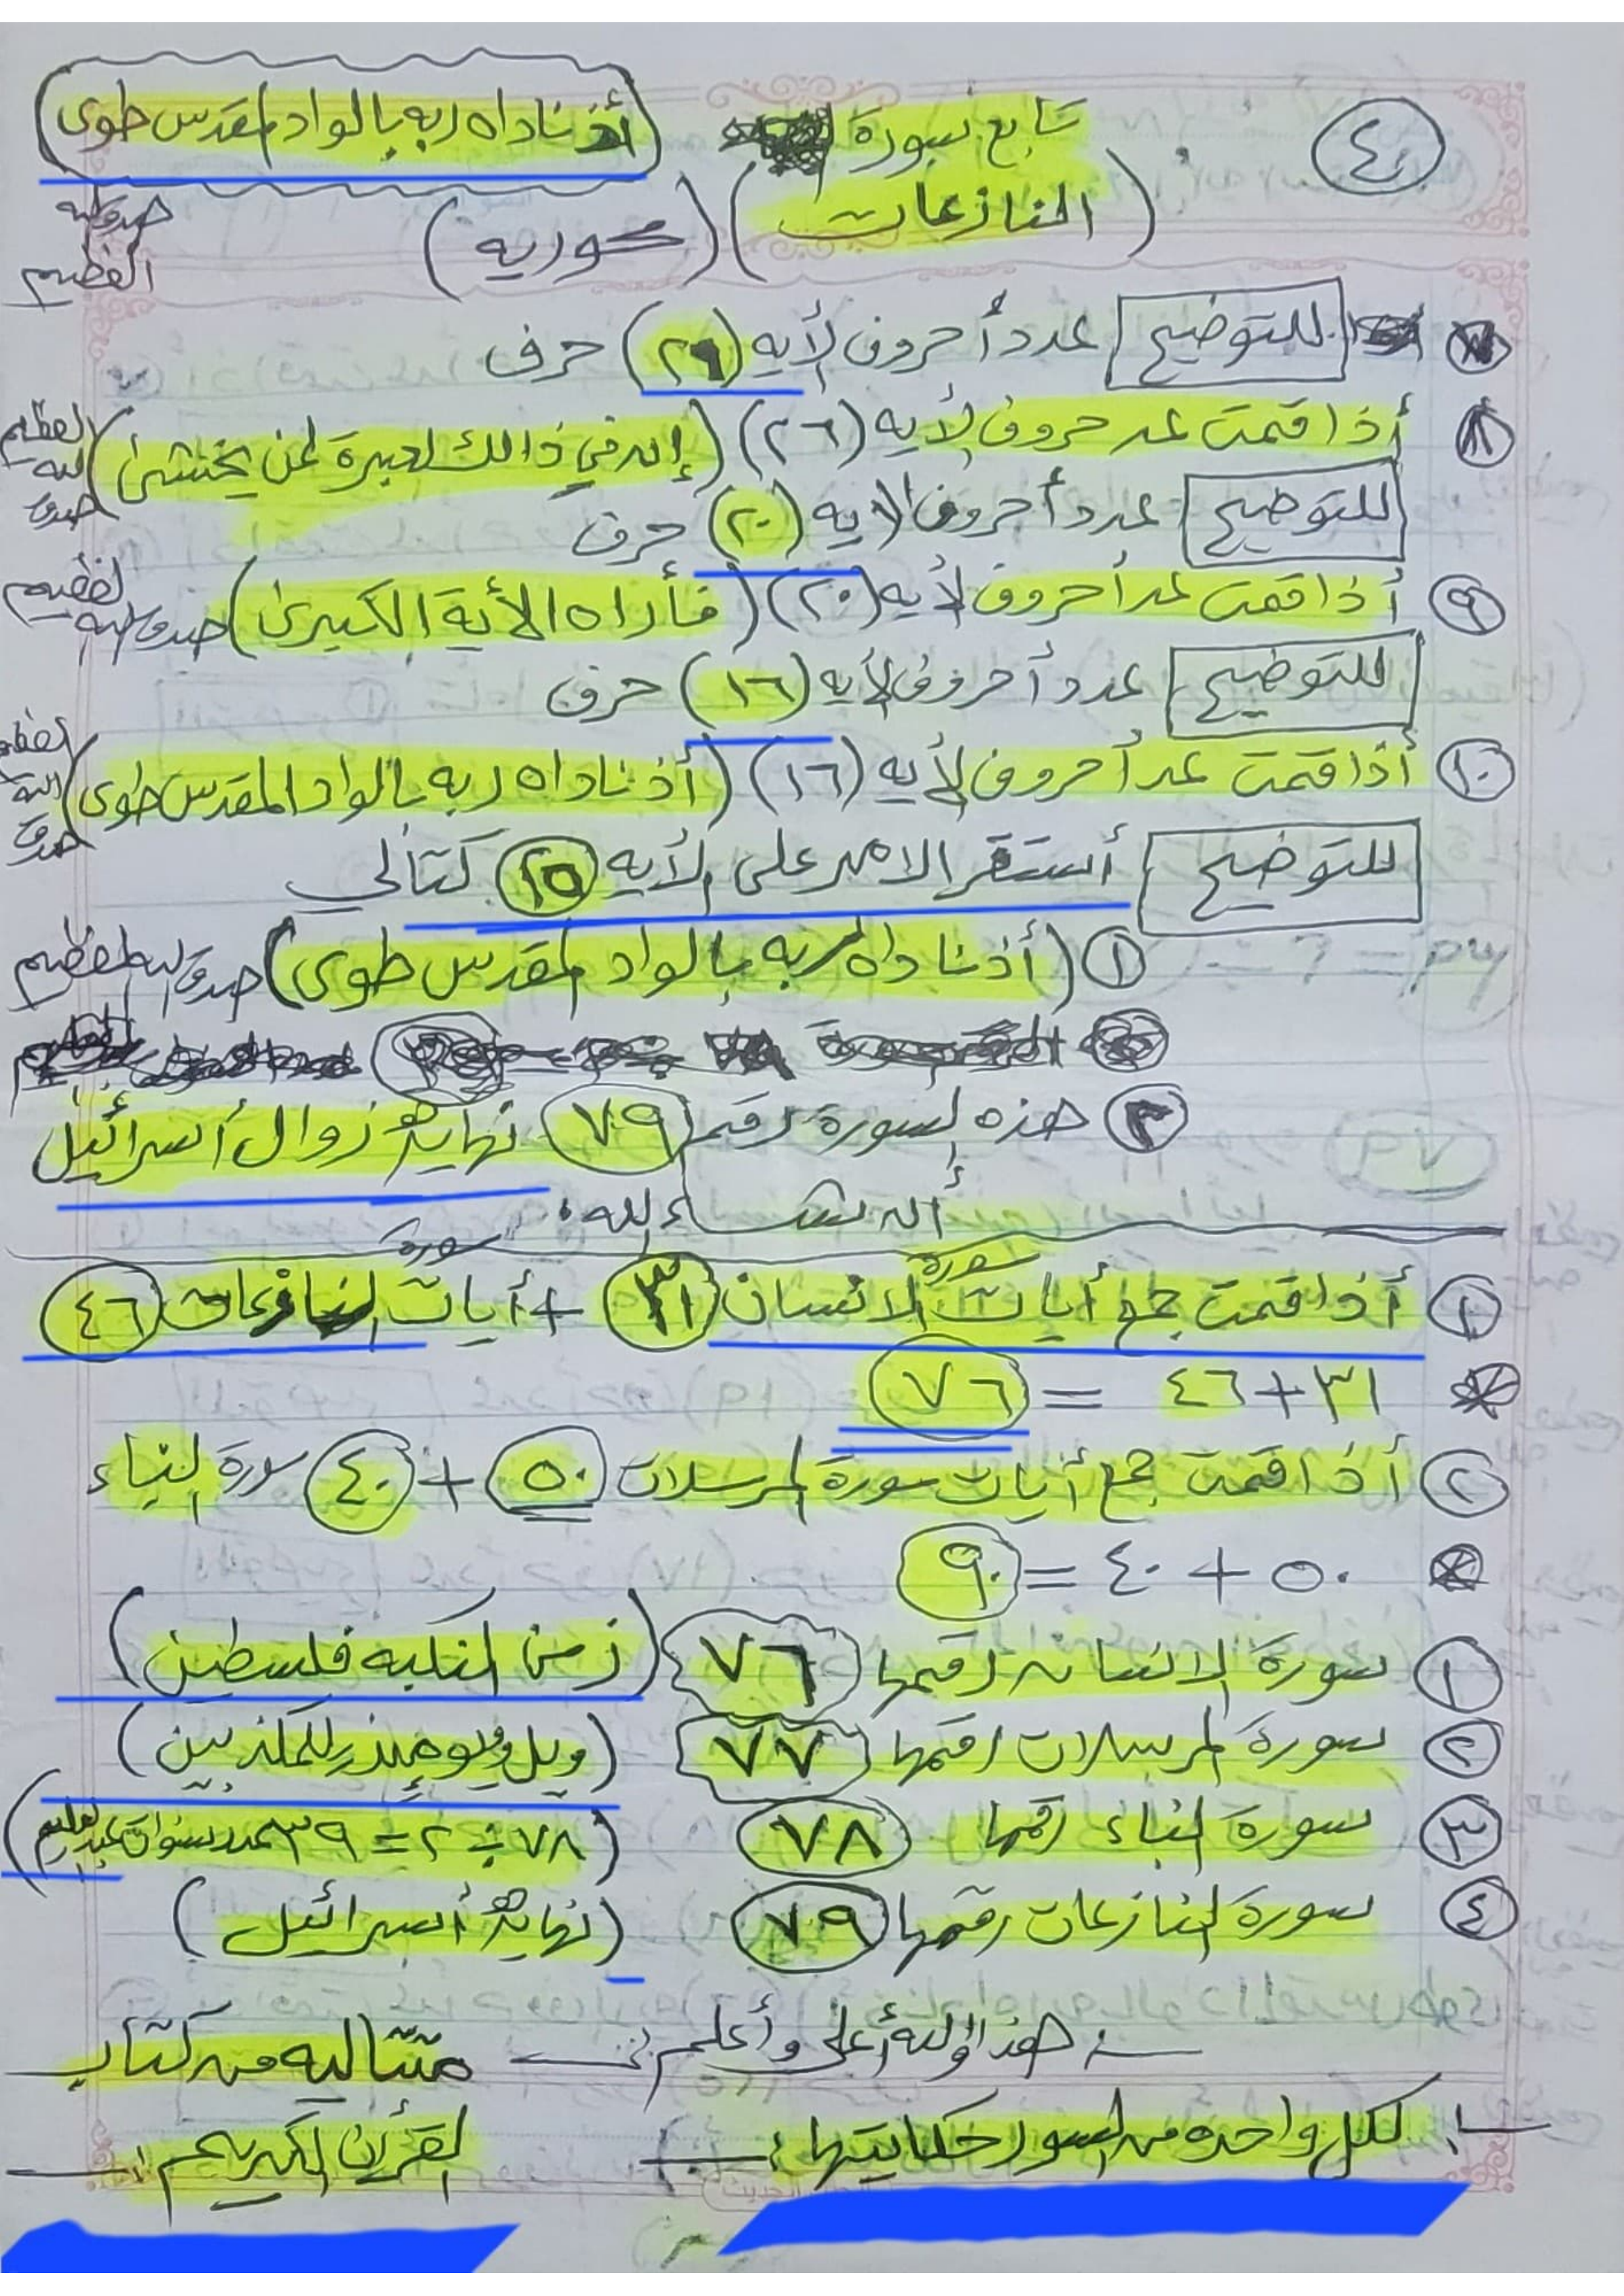 ٤
تابع سورة
أذ ناداه ربه بالواد المقدس طوى
(النازعات) (كوريه)
صدق الله العظيم
للتوضيح عدد أحروف لأيه (٢٩) حرف
٨ أذا قمت عد حروف لأيه (٢٦) (إن في ذالك لعبرة لمن يخشى) صدق الله العظيم
للتوضيح عدد أحروف الايه (٢٠) حرف
٩ أذا قمت عد أحروف لأيه (٢٠) (فأراه الأية الكبرى) صدق الله العظيم
للتوضيح عدد أحروف لأيه (١٦) حرف
١٠ أذا قمت عد أحروف لأيه (١٦) (أذ ناداه ربه بالواد المقدس طوى) صدق الله العظيم
للتوضيح أستقر الامر على الأيه ١٥ كتالي
١ (أذ ناداه ربه بالواد المقدس طوى) صدق الله العظيم
٢ هذه السورة رقمها ٧٩ نهاية زوال أسرائيل
أن شاء الله
١ أذا قمت جمع أيات سورة الانسان ٣١ + أيات سورة النازعات ٤٦
٣١ + ٤٦ = ٧٦
٢ أذا قمت جمع أيات سورة المرسلات ٥٠ + ٤٠ سورة النباء
٥٠ + ٤٠ = ٩٠
١ سورة الانسان رقمها ٧٦ (زمن النكبه فلسطين)
٢ سورة المرسلات رقمها ٧٧ (ويل يومئذ للمكذبين)
٣ سورة النباء رقمها ٧٨ (٧٨ ÷ ٢ = ٣٩ عدد سنوات)
٤ سورة النازعات رقمها ٧٩ (نهاية أسرائيل)
هذا والله أعلى وأعلم
متتاليه من كتاب
لكل واحده من السور حكايتها
القرأن الكريم